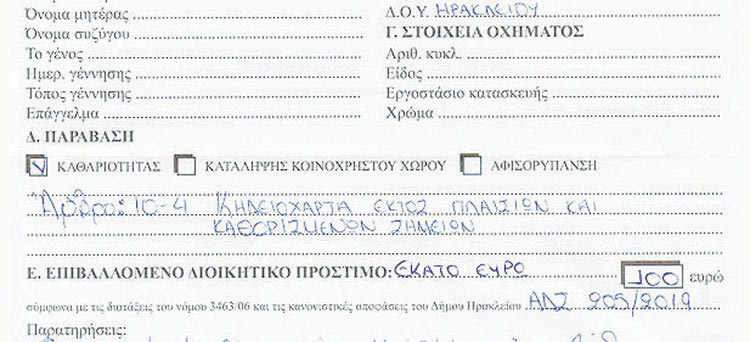 Όνομα μητέρας
Δ.Ο.Υ. ΗΡΑΚΛΕΙΟΥ
Όνομα συζύγου
Γ. ΣΤΟΙΧΕΙΑ ΟΧΗΜΑΤΟΣ
Το γένος
Αριθ. κυκλ.
Ημερ. γέννησης
Είδος
Τόπος γέννησης
Εργοστάσιο κατασκευής
Επάγγελμα
Χρώμα
Δ. ΠΑΡΑΒΑΣΗ
ΚΑΘΑΡΙΟΤΗΤΑΣ ΚΑΤΑΛΗΨΗΣ ΚΟΙΝΟΧΡΗΣΤΟΥ ΧΩΡΟΥ ΑΦΙΣΟΡΥΠΑΝΣΗ
Άρθρο: 10-4 ΚΗΔΕΙΟΧΑΡΤΑ ΕΚΤΟΣ ΠΛΑΙΣΙΩΝ ΚΑΙ
ΚΑΘΟΡΙΣΜΕΝΩΝ ΣΗΜΕΙΩΝ
Ε. ΕΠΙΒΑΛΛΟΜΕΝΟ ΔΙΟΙΚΗΤΙΚΟ ΠΡΟΣΤΙΜΟ: ΕΚΑΤΟ ΕΥΡΟ 100 ευρώ
σύμφωνα με τις διατάξεις του νόμου 3463/06 και τις κανονιστικές αποφάσεις του Δήμου Ηρακλείου ΑΔΣ 205/2019
Παρατηρήσεις: